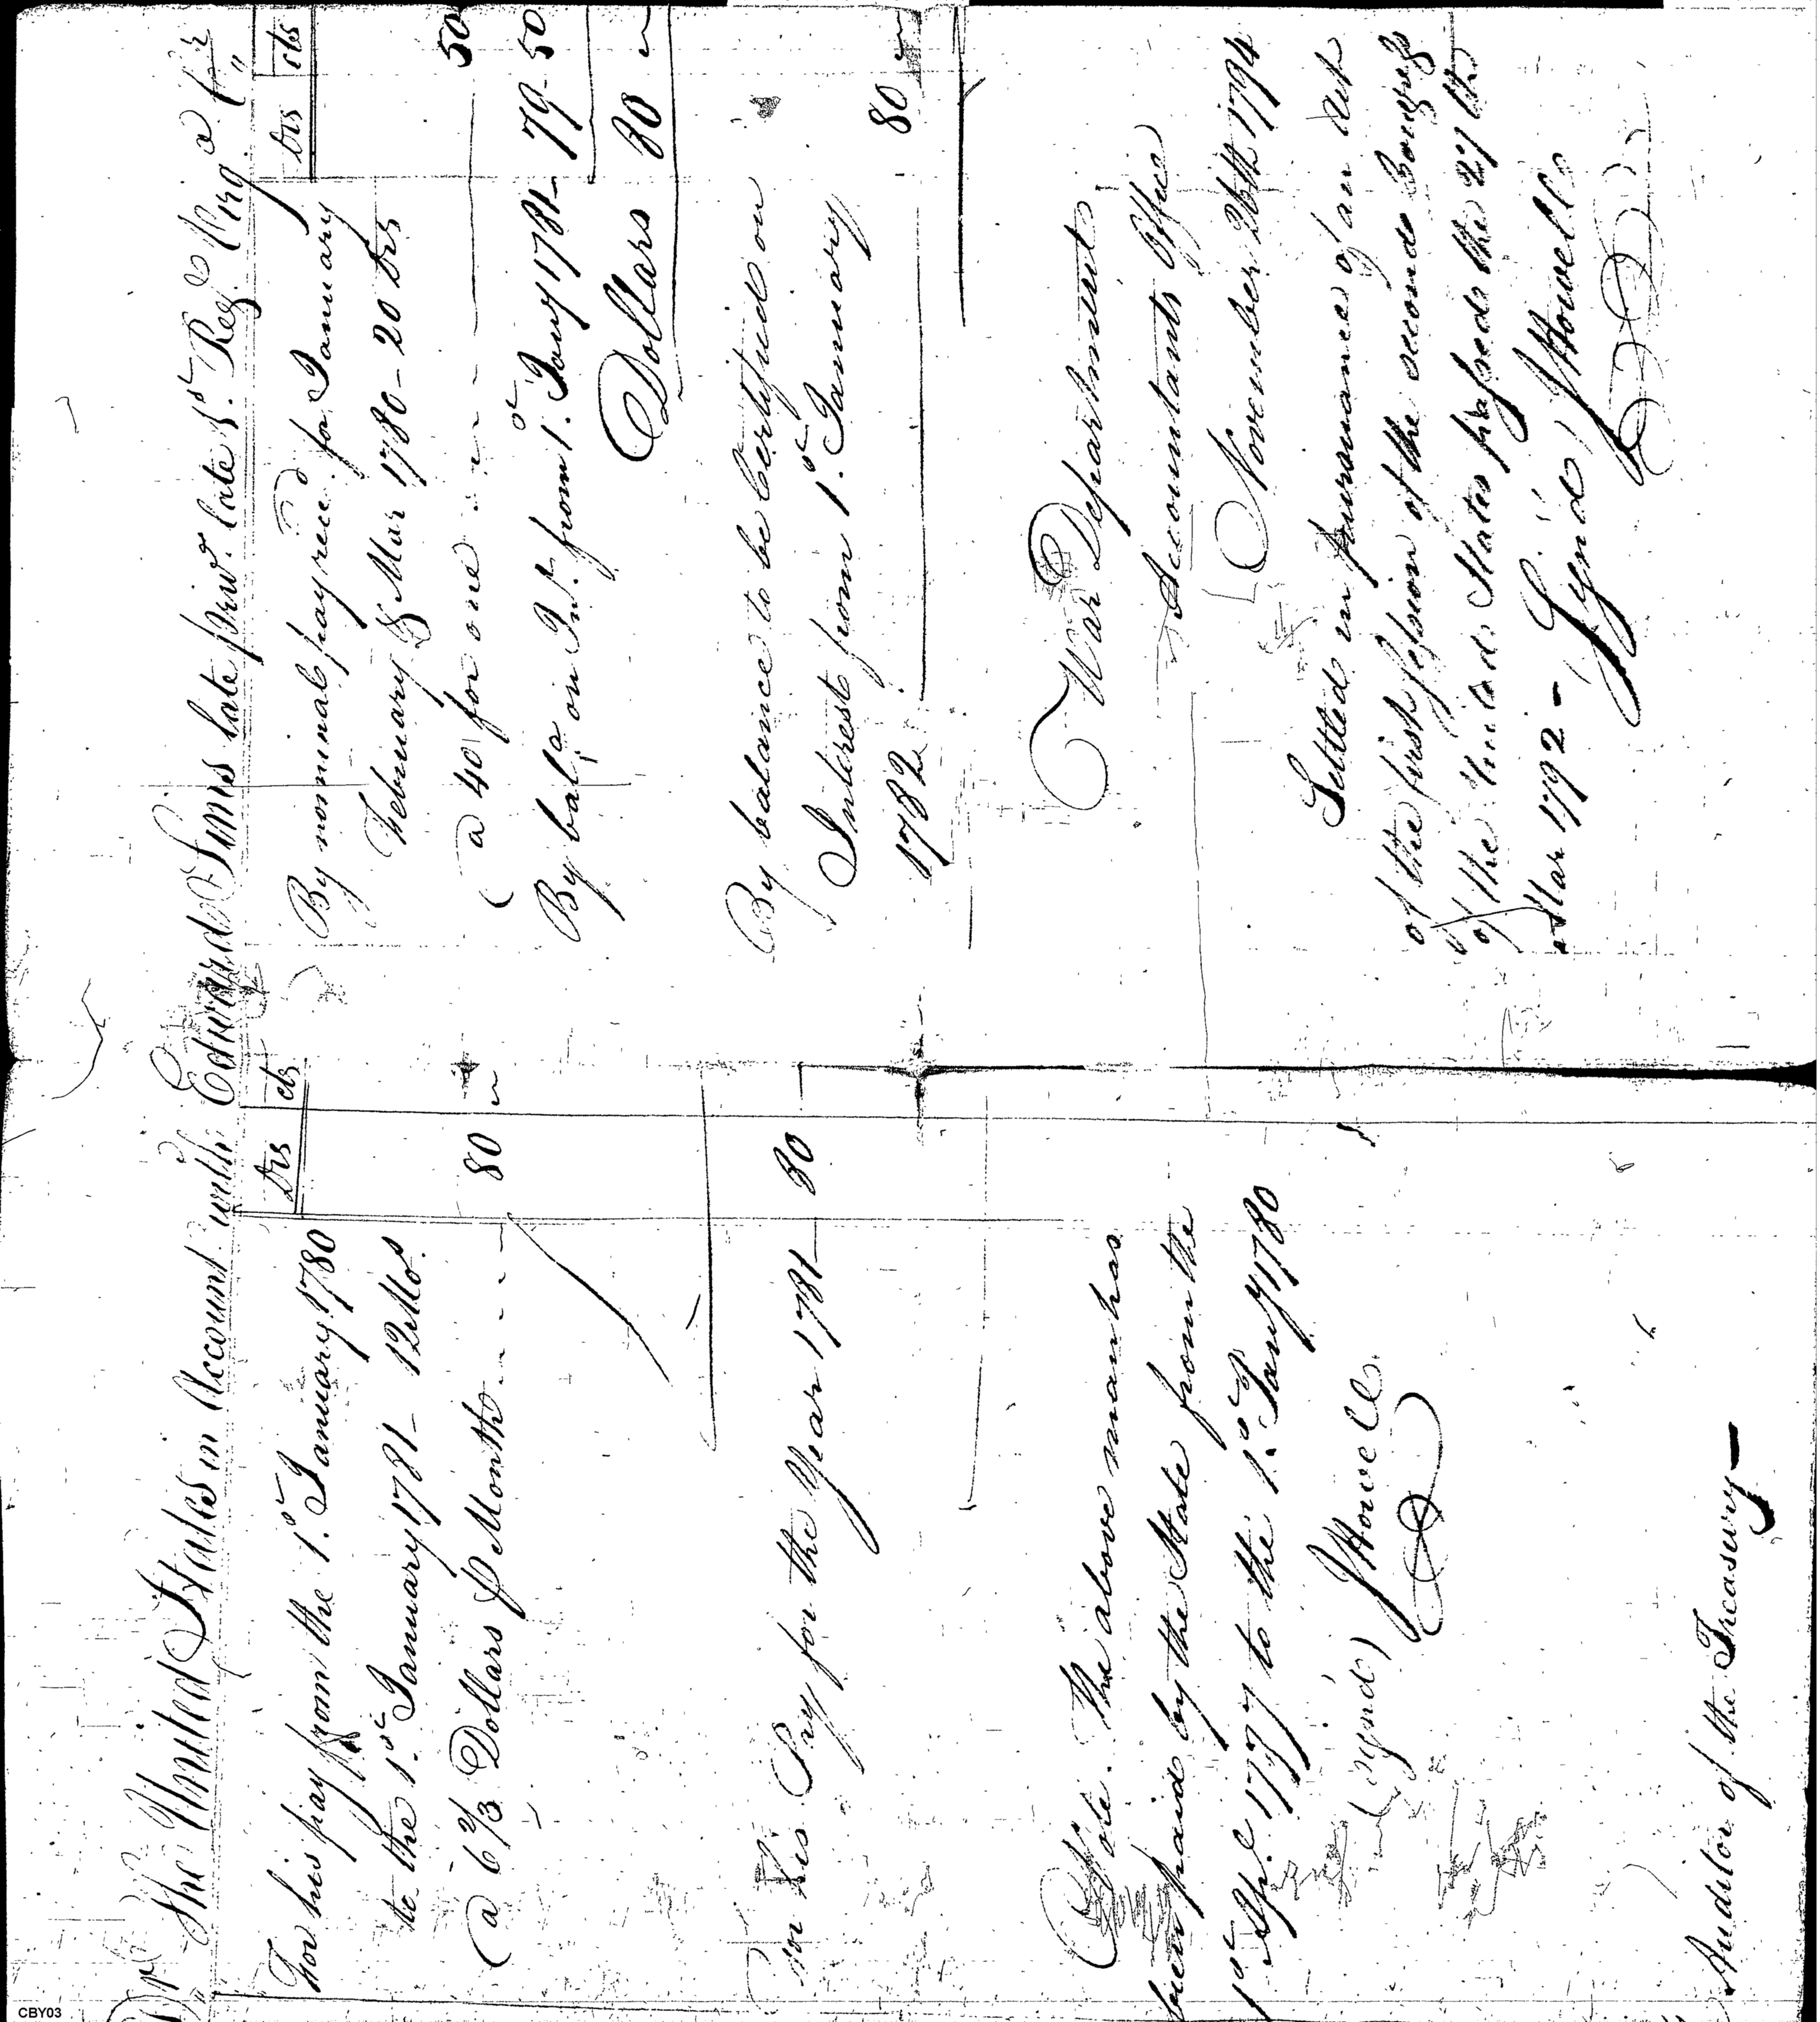 Dr The United States in Account with Edward Sims late priv.t late 1st Reg.t Virg.a Cr
Drs cts
For his pay from the 1st January 1780
to the 1st January 1781 - 12 Mos.
@ 6 2/3 Dollars P Month 80 ~
For his Pay for the Year 1781 - 80
Note. The above man has
been paid by the State from the
1st Apl. 1777 to the 1st Jany 1780
(signd) J Howell
Auditor of the Treasury -
Drs cts
By nominal pay recd. for January
February & Mar 1780 - 20 Drs
@ 40 for one 50
By bale. on Int. from 1st Jany 1781 - 79 - 50
Dollars 80 ~
By balance to be certified on
Interest from 1st January
1782. 80 ~
War Department
Accountants Office
November 26th 1794
Settled in pursuance of an Act
of the first session of the second Congress
of the United States passed the 27th
Mar 1792 -
Signd, J Howell
CBY03